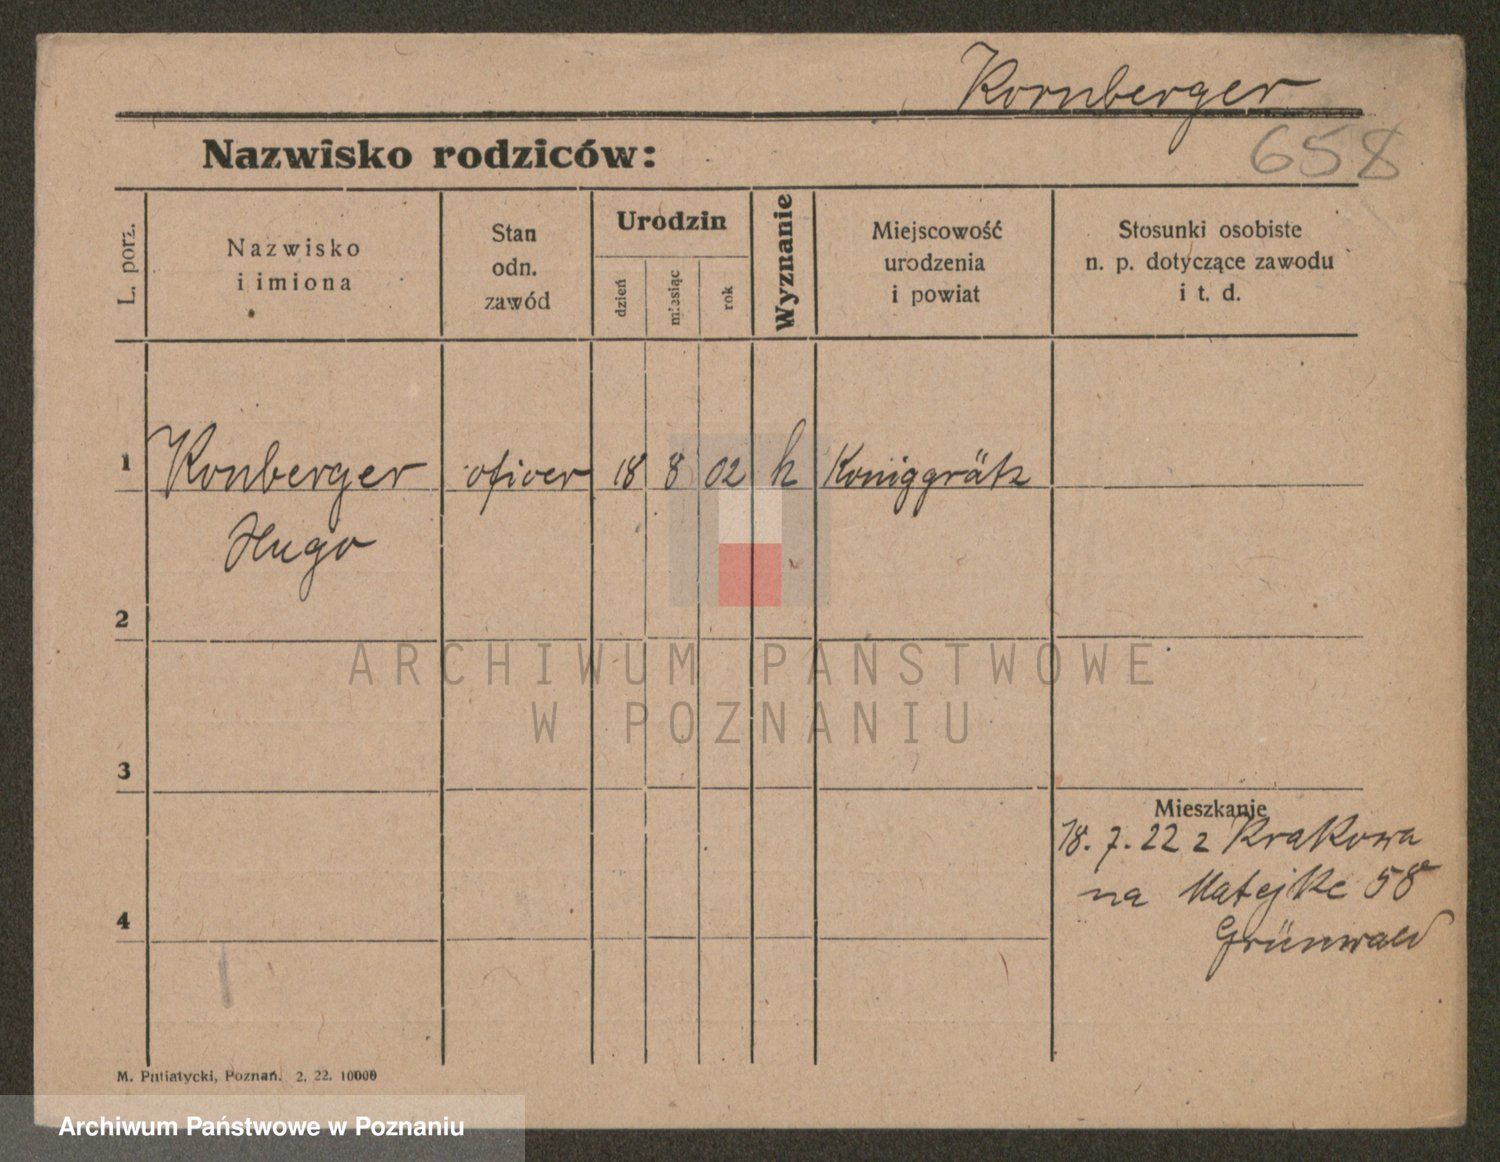 Kornberger
658
Nazwisko rodziców:
L. porz.
Nazwisko
i imiona
Stan
odn.
zawód
Urodzin
dzień
miesiąc
rok
Wyznanie
Miejscowość
urodzenia
i powiat
Stosunki osobiste
n. p. dotyczące zawodu
i t. d.
1 Kornberger oficer 18 8 02 k Koniggrätz
Hugo
2
3
4
Mieszkanie
18. 7. 22 z Krakowa
na Matejke 58
Grünwald
M. Putiatycki, Poznań. 2. 22. 10000
ARCHIWUM PAŃSTWOWE
W POZNANIU
Archiwum Państwowe w Poznaniu